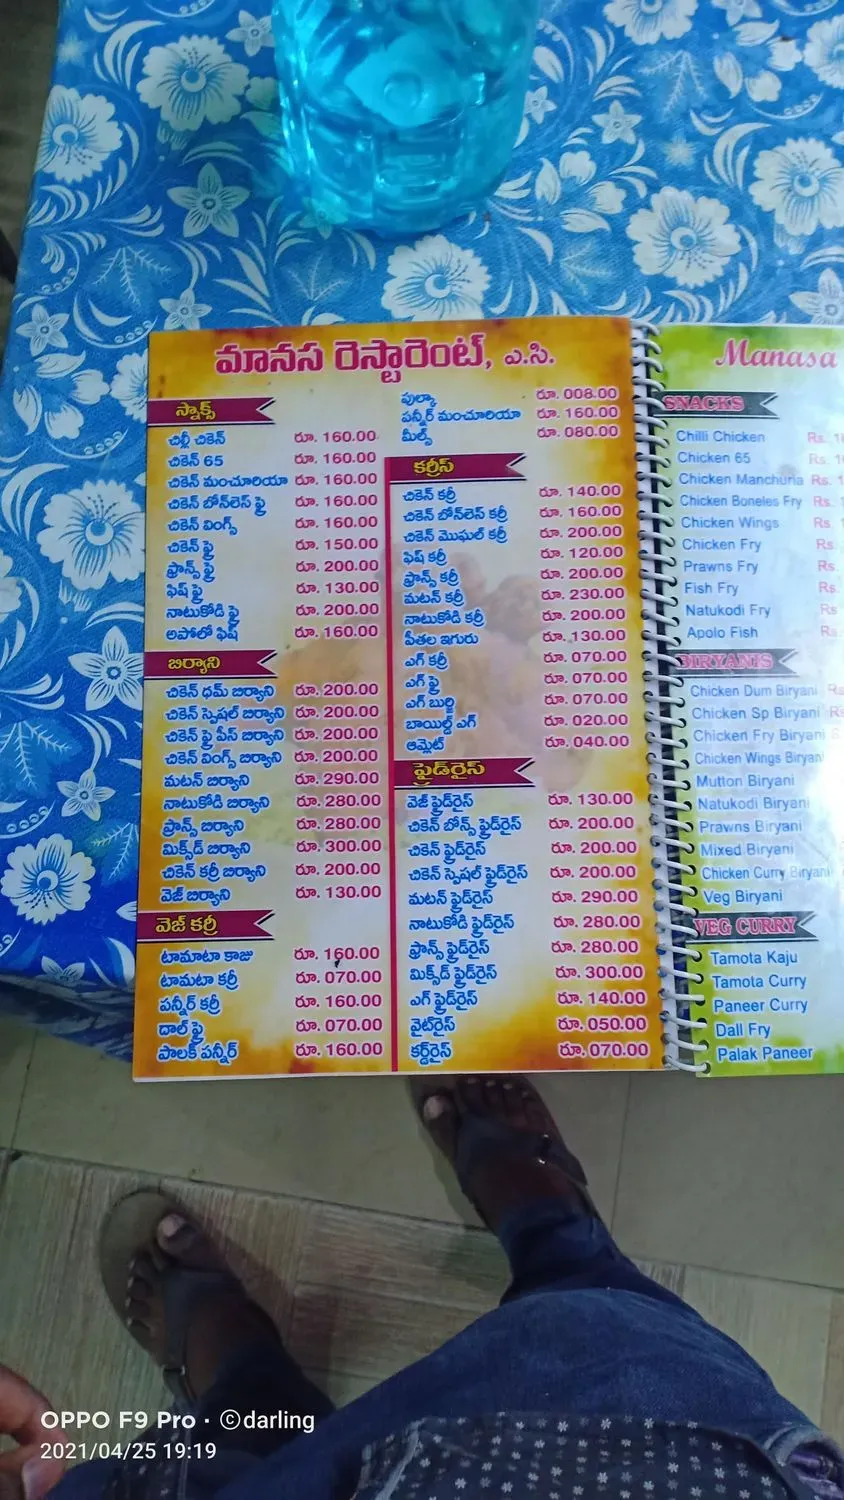 మానస రెస్టారెంట్, ఎ.సి.
స్నాక్స్
చిల్లీ చికెన్ రూ. 160.00
చికెన్ 65 రూ. 160.00
చికెన్ మంచూరియా రూ. 160.00
చికెన్ బోన్‌లెస్ ఫ్రై రూ. 160.00
చికెన్ వింగ్స్ రూ. 160.00
చికెన్ ఫ్రై రూ. 150.00
ఫ్రాన్స్ ఫ్రై రూ. 200.00
ఫిష్ ఫ్రై రూ. 130.00
నాటుకోడి ఫ్రై రూ. 200.00
అపోలో ఫిష్ రూ. 160.00
బిర్యాని
చికెన్ ధమ్ బిర్యాని రూ. 200.00
చికెన్ స్పెషల్ బిర్యాని రూ. 200.00
చికెన్ ఫ్రై పీస్ బిర్యాని రూ. 200.00
చికెన్ వింగ్స్ బిర్యాని రూ. 200.00
మటన్ బిర్యాని రూ. 290.00
నాటుకోడి బిర్యాని రూ. 280.00
ఫ్రాన్స్ బిర్యాని రూ. 280.00
మిక్స్‌డ్ బిర్యాని రూ. 300.00
చికెన్ కర్రీ బిర్యాని రూ. 200.00
వెజ్ బిర్యాని రూ. 130.00
వెజ్ కర్రీ
టామాటా కాజు రూ. 160.00
టామటా కర్రీ రూ. 070.00
పన్నీర్ కర్రీ రూ. 160.00
దాల్ ఫ్రై రూ. 070.00
పాలక్ పన్నీర్ రూ. 160.00
పుల్కా రూ. 008.00
పన్నీర్ మంచూరియా రూ. 160.00
మీల్స్ రూ. 080.00
కర్రీస్
చికెన్ కర్రీ రూ. 140.00
చికెన్ బోన్‌లెస్ కర్రీ రూ. 160.00
చికెన్ మొఘల్ కర్రీ రూ. 200.00
ఫిష్ కర్రీ రూ. 120.00
ఫ్రాన్స్ కర్రీ రూ. 200.00
మటన్ కర్రీ రూ. 230.00
నాటుకోడి కర్రీ రూ. 200.00
పీతల ఇగురు రూ. 130.00
ఎగ్ కర్రీ రూ. 070.00
ఎగ్ ఫ్రై రూ. 070.00
ఎగ్ బుర్జి రూ. 070.00
బాయిల్డ్ ఎగ్ రూ. 020.00
ఆమ్లెట్ రూ. 040.00
ఫ్రైడ్‌రైస్
వెజ్ ఫ్రైడ్‌రైస్ రూ. 130.00
చికెన్ బోన్స్ ఫ్రైడ్‌రైస్ రూ. 200.00
చికెన్ ఫ్రైడ్‌రైస్ రూ. 200.00
చికెన్ స్పెషల్ ఫ్రైడ్‌రైస్ రూ. 200.00
మటన్ ఫ్రైడ్‌రైస్ రూ. 290.00
నాటుకోడి ఫ్రైడ్‌రైస్ రూ. 280.00
ఫ్రాన్స్ ఫ్రైడ్‌రైస్ రూ. 280.00
మిక్స్‌డ్ ఫ్రైడ్‌రైస్ రూ. 300.00
ఎగ్ ఫ్రైడ్‌రైస్ రూ. 140.00
వైట్‌రైస్ రూ. 050.00
కర్డ్‌రైస్ రూ. 070.00
Manasa
SNACKS
Chilli Chicken Rs.
Chicken 65 Rs.
Chicken Manchuria Rs.
Chicken Boneles Fry Rs.
Chicken Wings Rs.
Chicken Fry Rs.
Prawns Fry Rs.
Fish Fry Rs.
Natukodi Fry Rs
Apolo Fish Rs
BIRYANIS
Chicken Dum Biryani Rs
Chicken Sp Biryani Rs
Chicken Fry Biryani
Chicken Wings Biryani
Mutton Biryani
Natukodi Biryani
Prawns Biryani
Mixed Biryani
Chicken Curry Biryani
Veg Biryani
VEG CURRY
Tamota Kaju
Tamota Curry
Paneer Curry
Dall Fry
Palak Paneer
OPPO F9 Pro · ©darling
2021/04/25 19:19